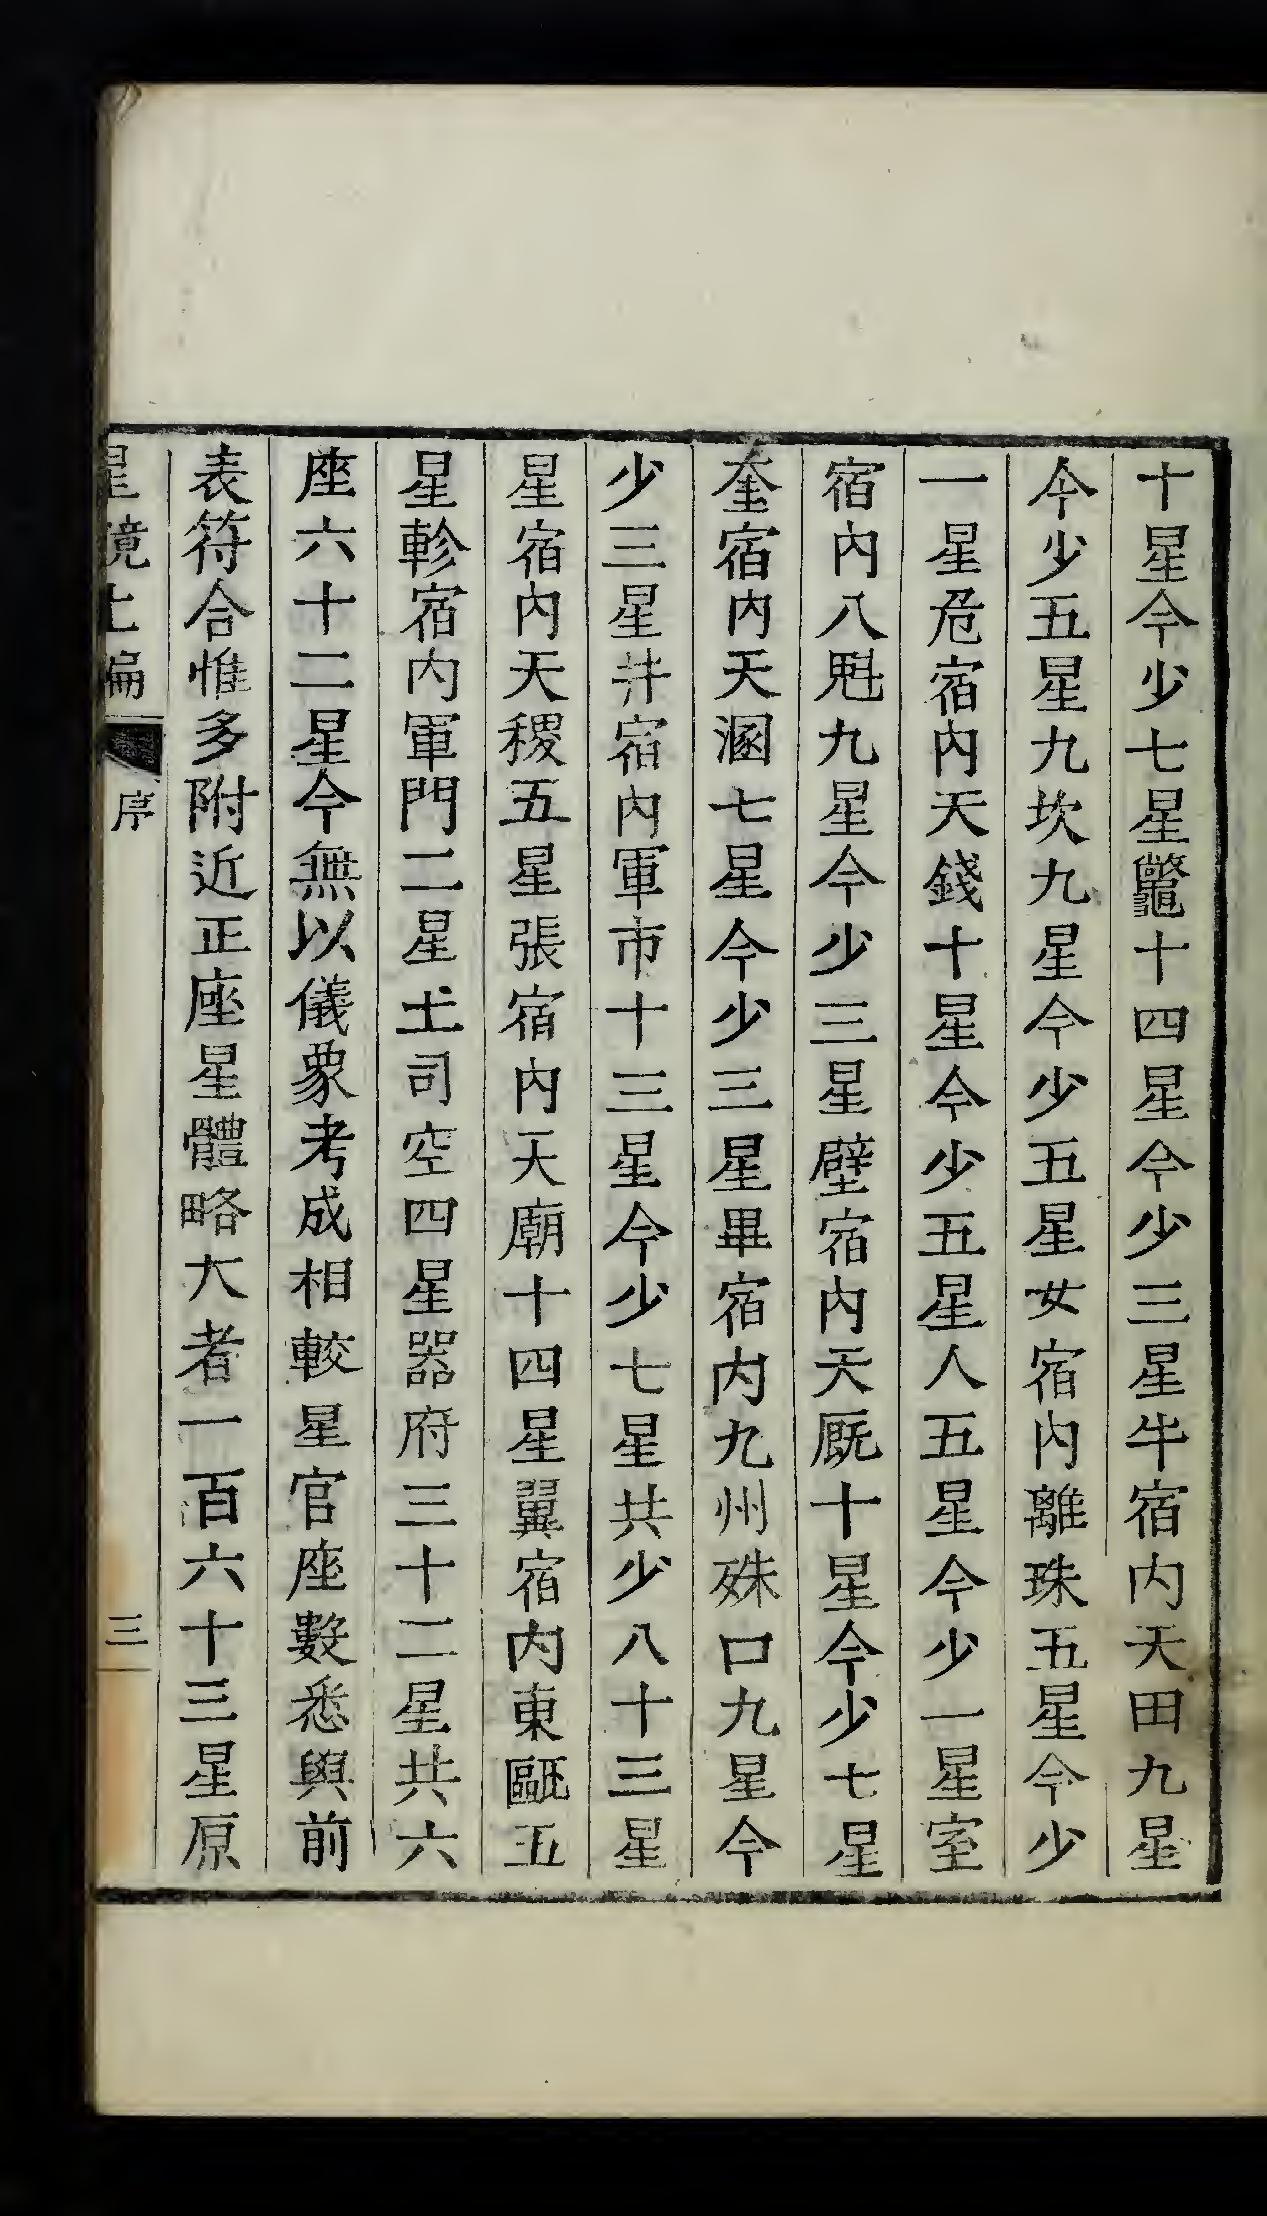 十星今少七星鼈十四星今少三星牛宿内天田九星
今少五星九坎九星今少五星女宿内離珠五星今少
一星危宿内天錢十星今少五星人五星今少一星室
宿内八魁九星今少三星壁宿内天廐十星今少七星
奎宿内天溷七星今少三星畢宿内九州殊口九星今
少三星井宿内軍市十三星今少七星共少八十三星
星宿内天稷五星張宿内天廟十四星翼宿内東甌五
星軫宿内軍門二星土司空四星器府三十二星共六
座六十二星今無以儀象考成相較星官座數悉與前
表符合惟多附近正座星體略大者一百六十三星原
星鏡上編
序
三